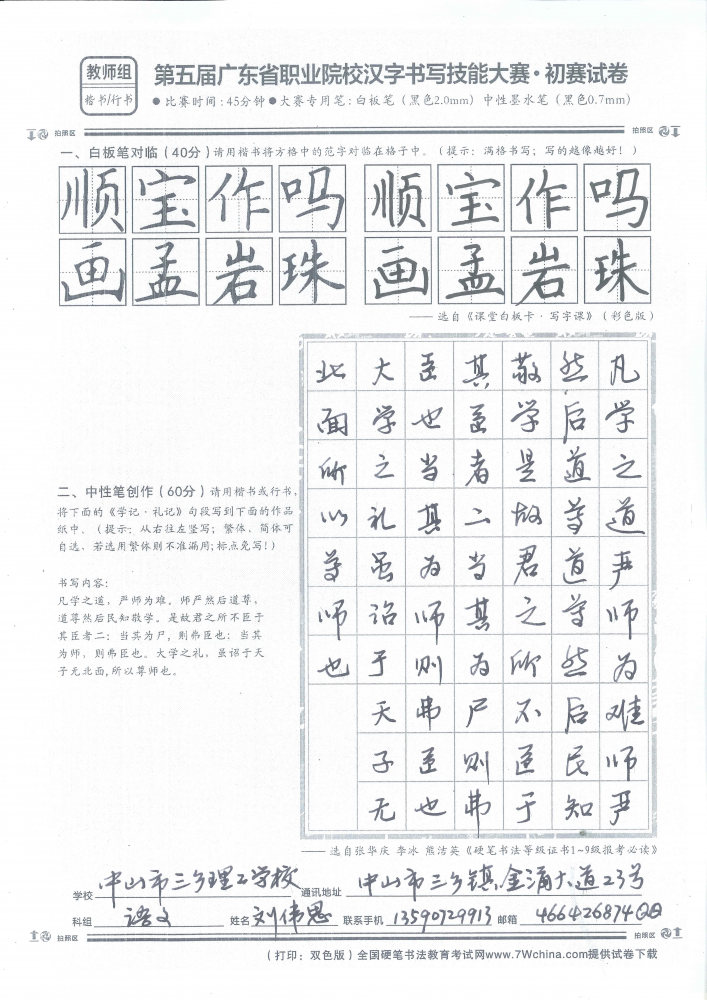 教师组
楷书/行书
第五届广东省职业院校汉字书写技能大赛·初赛试卷
● 比赛时间：45分钟 ● 大赛专用笔：白板笔（黑色2.0mm）中性墨水笔（黑色0.7mm）
拍照区
拍照区
一、白板笔对临（40分）请用楷书将方格中的范字对临在格子中。（提示：满格书写；写的越像越好！）
顺宝作吗 顺宝作吗
画孟岩珠 画孟岩珠
—— 选自《课堂白板卡·写字课》（彩色版）
二、中性笔创作（60分）请用楷书或行书，
将下面的《学记·礼记》句段写到下面的作品
纸中。（提示：从右往左竖写；繁体、简体可
自选，若选用繁体则不准漏用；标点免写！）
书写内容：
凡学之道，严师为难。师严然后道尊，
道尊然后民知敬学。是故君之所不臣于
其臣者二：当其为尸，则弗臣也；当其
为师，则弗臣也。大学之礼，虽诏于天
子无北面，所以尊师也。
凡学之道严师为难师严
然后道尊道尊然后民知
敬学是故君之所不臣于
其臣者二当其为尸则弗
臣也当其为师则弗臣也
大学之礼虽诏于天子无
北面所以尊师也
—— 选自张华庆 李冰 熊洁英《硬笔书法等级证书1~9级报考必读》
学校 中山市三乡理工学校 通讯地址 中山市三乡镇金涌大道23号
科组 语文 姓名 刘伟恩 联系手机 13590729913 邮箱 466426874QQ
拍照区
拍照区
（打印：双色版）全国硬笔书法教育考试网www.7Wchina.com提供试卷下载